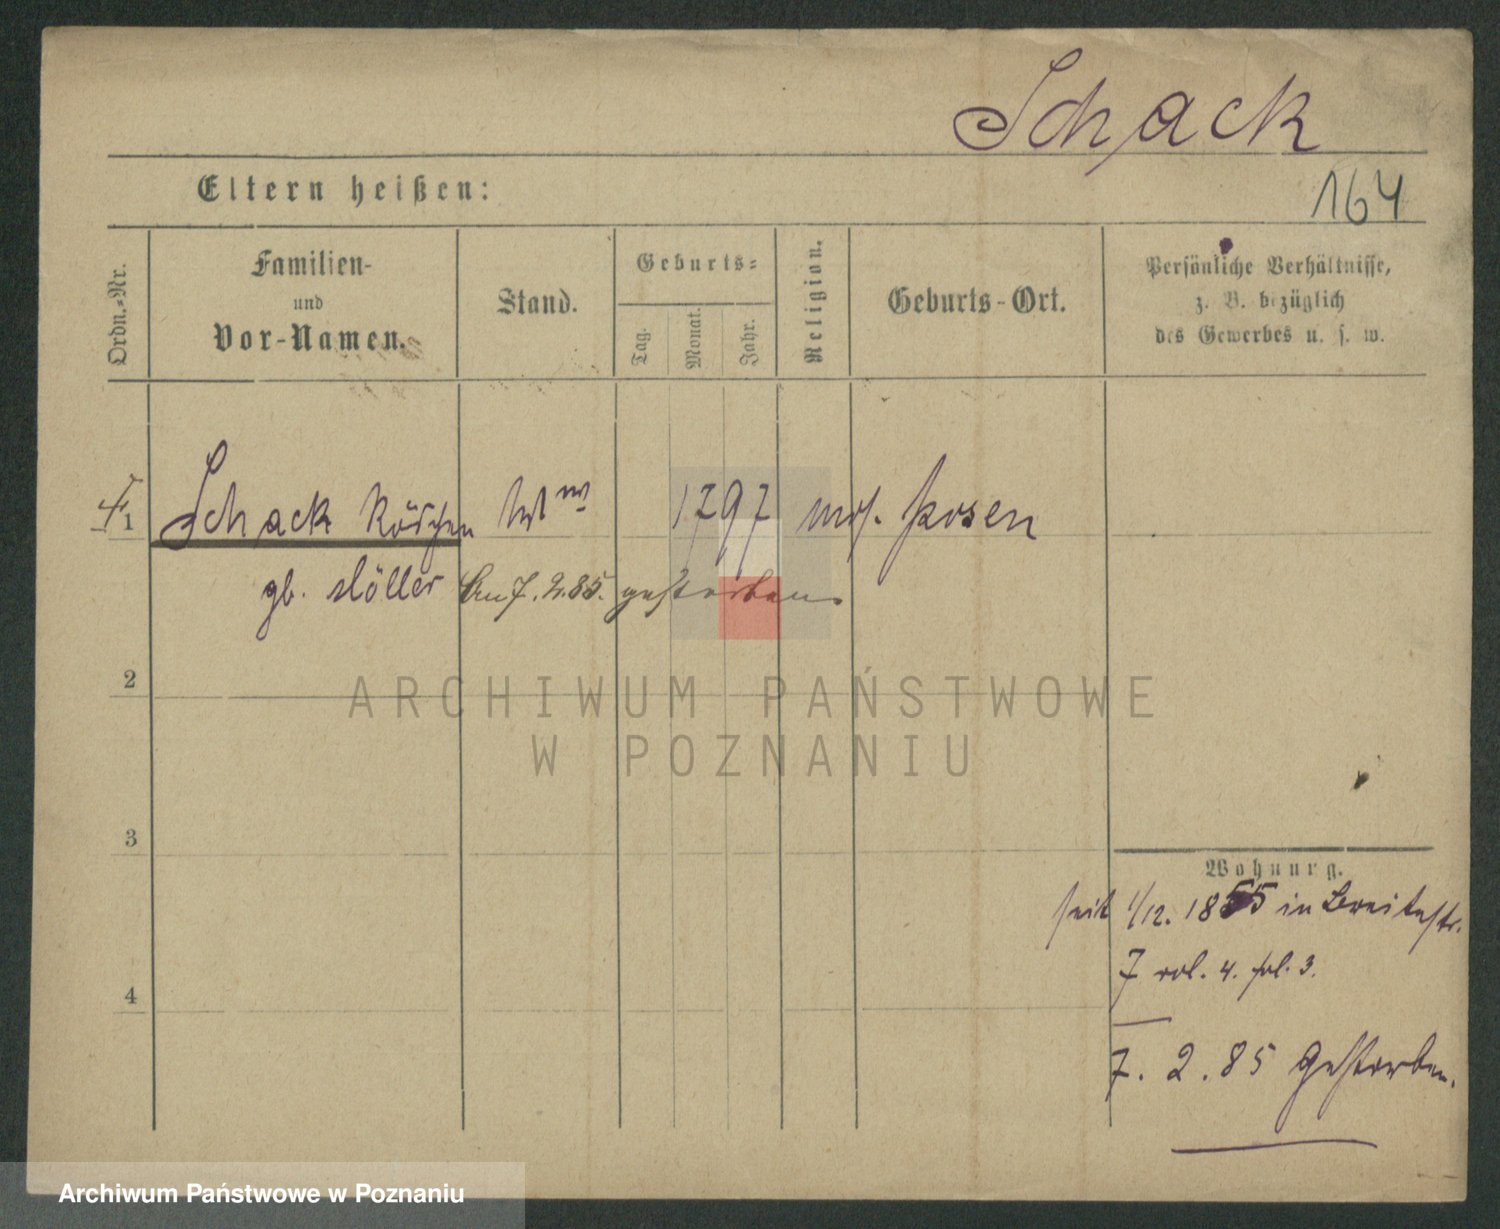 Schack
Eltern heißen:
164
Ordn.-Nr.
Familien-
und
Vor-Namen.
Stand.
Geburts-
Tag.
Monat.
Jahr.
Religion.
Geburts-Ort.
Persönliche Verhältnisse,
z. B. bezüglich
des Gewerbes u. s. w.
1
Schack Röschen Ww 1797 mos. Posen
gb. Möller Am 7. 2. 85. gestorben.
2
ARCHIWUM PAŃSTWOWE
W POZNANIU
3
Wohnung.
seit 1/12. 1855 in Breitestr.
7 vol. 4. fol. 3.
4
7. 2. 85 gestorben.
Archiwum Państwowe w Poznaniu